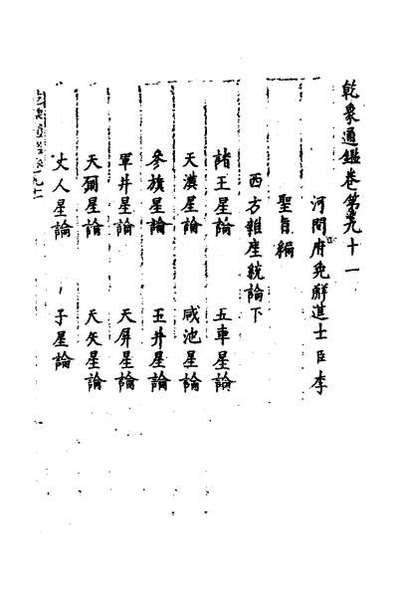 乾象通鑑卷第九十一
河間府免解進士臣李
聖旨編
西方雜座統論下
諸王星論　五車星論
天潢星論　咸池星論
參旗星論　玉井星論
軍井星論　天屏星論
天星論　天矢星論
丈人星論　子星論